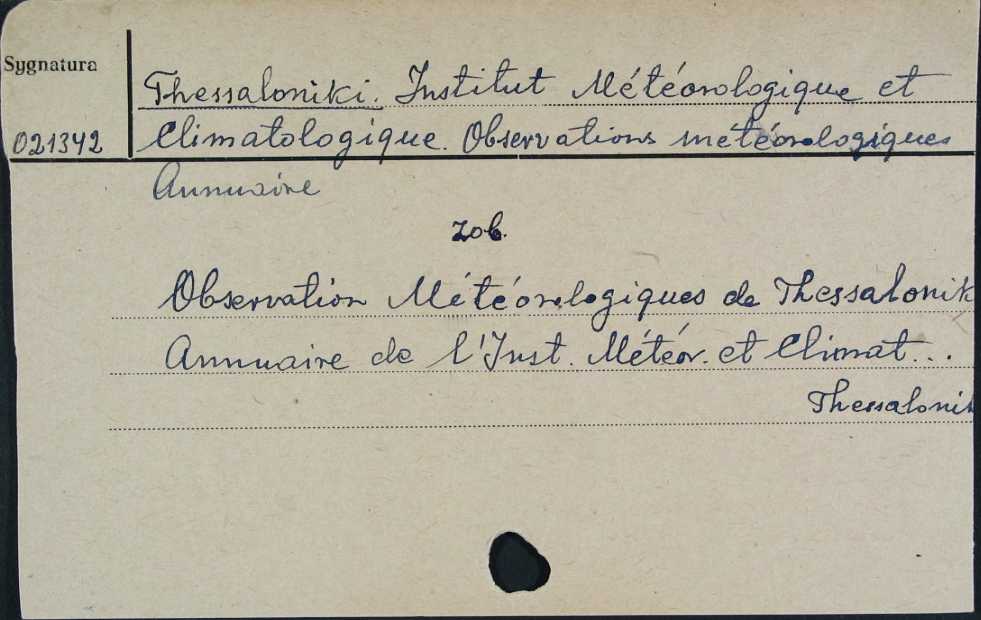 Sygnatura
Thessaloniki. Institut Météorologique et
021342 Climatologique. Observations météorologiques
Annuaire
zob.
Observation Météorologiques de Thessalonik
Annuaire de l'Inst. Météor. et Climat...
Thessalonik